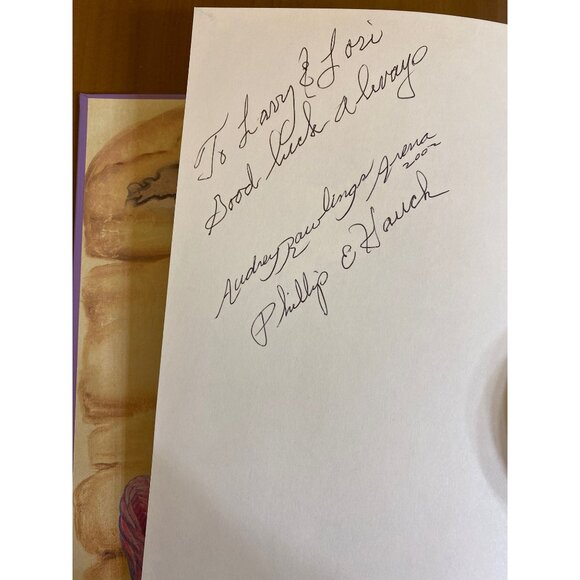 To Larry & Lori
Good Luck Always
Audrey Rawlings Arena
2002
Phillip E Hauck